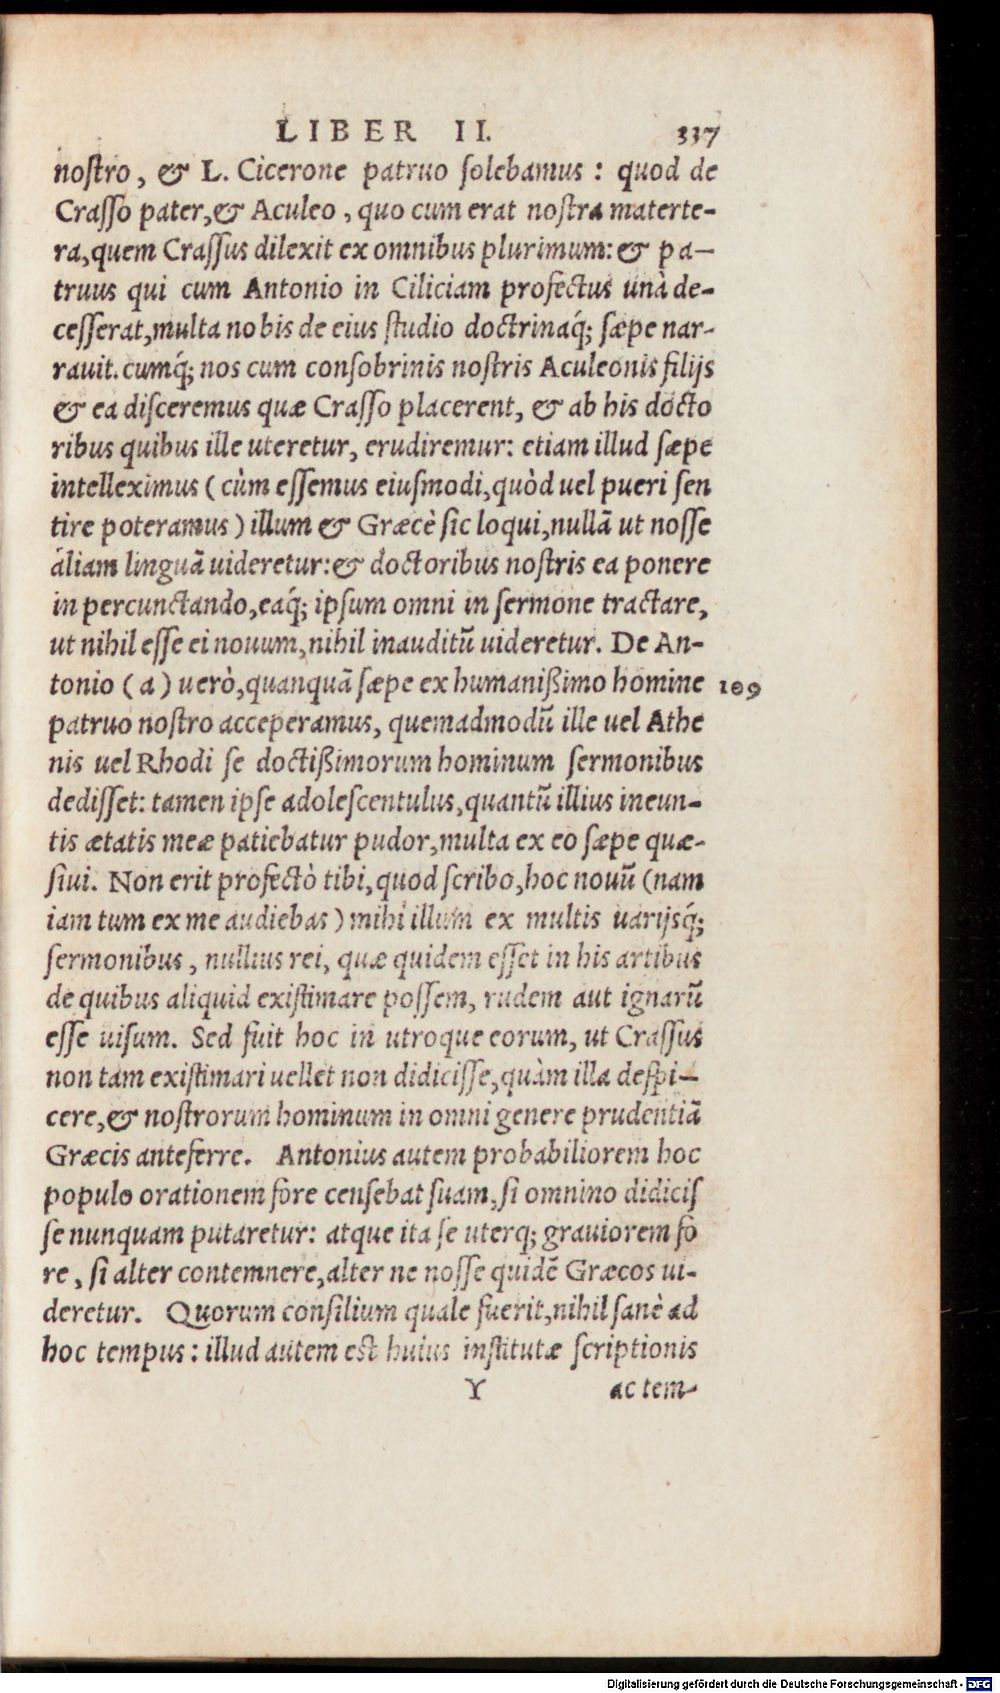 LIBER II. 337
noſtro, & L. Cicerone patruo ſolebamus: quod de
Craſſo pater, & Aculeo, quo cum erat noſtra materte-
ra, quem Craſſus dilexit ex omnibus plurimum: & pa-
truus qui cum Antonio in Ciliciam profectus unà de-
ceſſerat, multa nobis de eius ſtudio doctrinaq́; ſæpe nar-
rauit. cumq́; nos cum conſobrinis noſtris Aculeonis filijs
& ea diſceremus quæ Craſſo placerent, & ab his docto
ribus quibus ille uteretur, erudiremur: etiam illud ſæpe
intelleximus (cùm eſſemus eiuſmodi, quòd uel pueri ſen
tire poteramus) illum & Græcè ſic loqui, nullā ut noſſe
aliam linguā uideretur: & doctoribus noſtris ea ponere
in percunctando, eaq́; ipſum omni in ſermone tractare,
ut nihil eſſe ei nouum, nihil inauditū uideretur. De An-
tonio (a) uerò, quanquā ſæpe ex humaniſſimo homine 109
patruo noſtro acceperamus, quemadmodū ille uel Athe
nis uel Rhodi ſe doctiſſimorum hominum ſermonibus
dediſſet: tamen ipſe adoleſcentulus, quantū illius ineun-
tis ætatis meæ patiebatur pudor, multa ex eo ſæpe quæ-
ſiui. Non erit profectò tibi, quod ſcribo, hoc nouū (nam
iam tum ex me audiebas) mihi illum ex multis uarijsq́;
ſermonibus, nullius rei, quæ quidem eſſet in his artibus
de quibus aliquid exiſtimare poſſem, rudem aut ignarū
eſſe uiſum. Sed fuit hoc in utroque eorum, ut Craſſus
non tam exiſtimari uellet non didiciſſe, quàm illa deſpi-
cere, & noſtrorum hominum in omni genere prudentiā
Græcis anteferre. Antonius autem probabiliorem hoc
populo orationem fore cenſebat ſuam, ſi omnino didiciſ
ſe nunquam putaretur: atque ita ſe uterq; grauiorem fo
re, ſi alter contemnere, alter ne noſſe quidē Græcos ui-
deretur. Quorum conſilium quale fuerit, nihil ſanè ad
hoc tempus: illud autem eſt huius inſtitutæ ſcriptionis
Y ac tem-
Digitalisierung gefördert durch die Deutsche Forschungsgemeinschaft - DFG